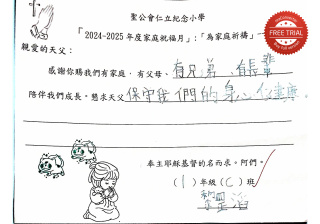 聖公會仁立紀念小學
「2024-2025年度家庭祝福月」:「為家庭祈禱」
FREE TRIAL
親愛的天父:
感謝你賜我們有家庭,有父母、有兄弟、有長輩
陪伴我們成長。懇求天父保守我們的身心健康。
奉主耶穌基督的名而求。阿們。
(1)年級(C)班